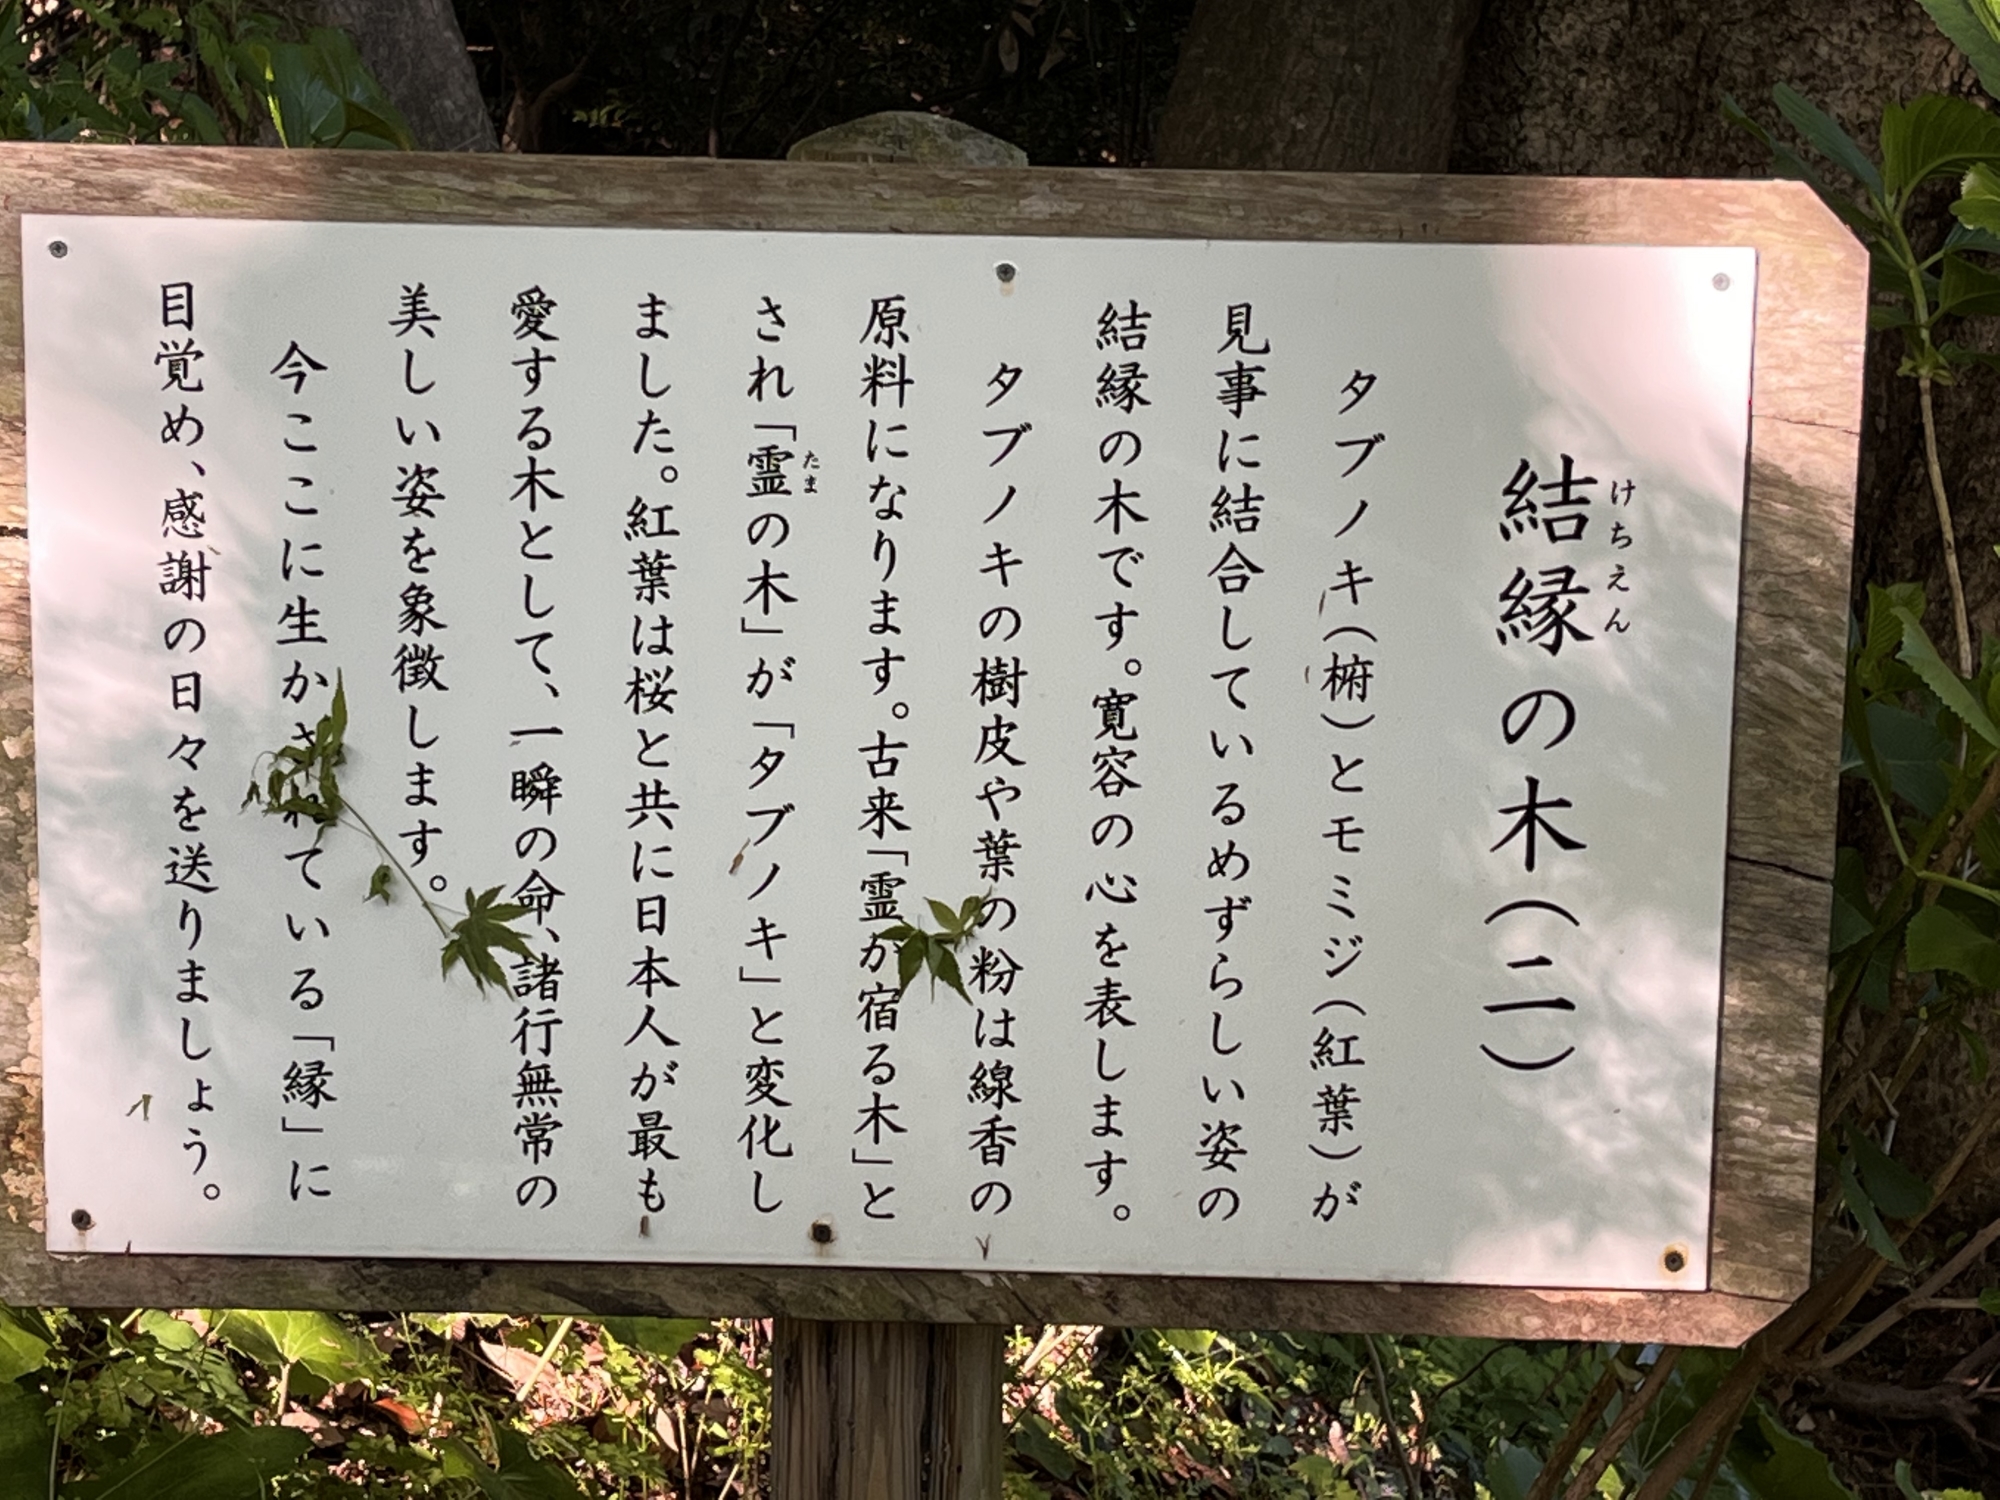 結縁の木（二）
けちえん
タブノキ（椨）とモミジ（紅葉）が
見事に結合しているめずらしい姿の
結縁の木です。寛容の心を表します。
タブノキの樹皮や葉の粉は線香の
原料になります。古来「霊が宿る木」と
され「霊の木」が「タブノキ」と変化し
たま
ました。紅葉は桜と共に日本人が最も
愛する木として、一瞬の命、諸行無常の
美しい姿を象徴します。
今ここに生かされている「縁」に
目覚め、感謝の日々を送りましょう。